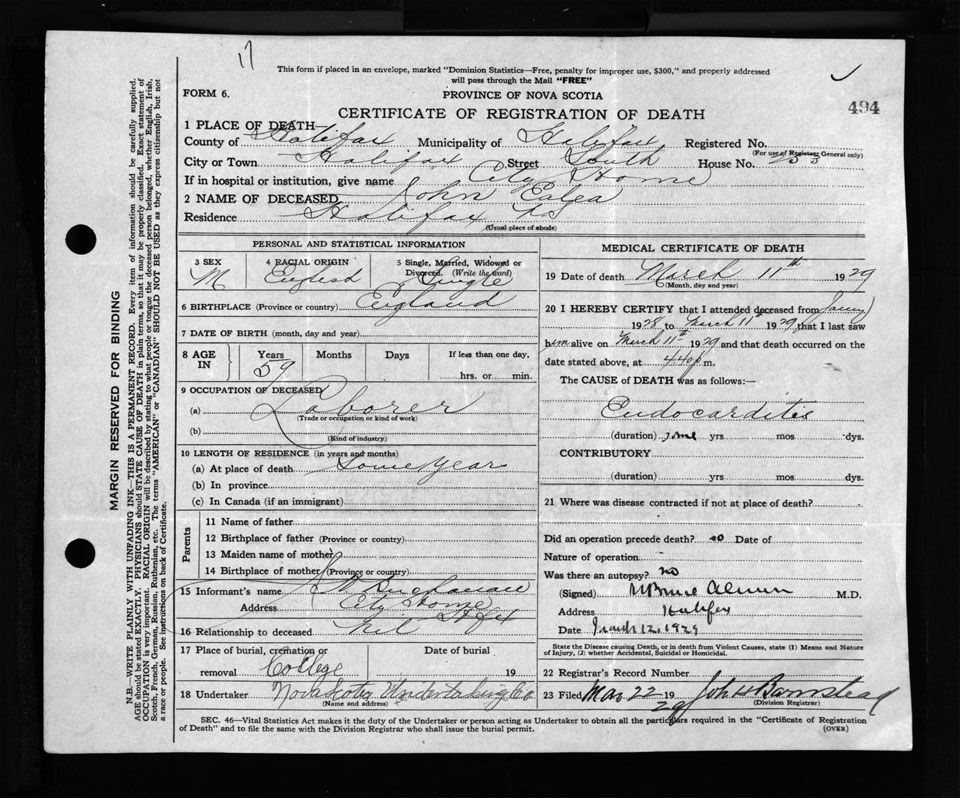 17
This form if placed in an envelope, marked "Dominion Statistics—Free, penalty for improper use, $300," and properly addressed
will pass through the Mail "FREE"
FORM 6.
PROVINCE OF NOVA SCOTIA
494
CERTIFICATE OF REGISTRATION OF DEATH
1 PLACE OF DEATH—
County of Halifax Municipality of Halifax Registered No.
(For use of Registrar General only)
City or Town Halifax Street South House No.
If in hospital or institution, give name City Home
2 NAME OF DECEASED John
Residence Halifax NS
(Usual place of abode)
PERSONAL AND STATISTICAL INFORMATION
3 SEX M
4 RACIAL ORIGIN English
5 Single, Married, Widowed or Divorced. (Write the word) Single
6 BIRTHPLACE (Province or country) England
7 DATE OF BIRTH (month, day and year)
8 AGE IN Years 59 Months Days If less than one day, hrs. or min.
9 OCCUPATION OF DECEASED
(a) Laborer
(Trade or occupation or kind of work)
(b)
(Kind of industry)
10 LENGTH OF RESIDENCE (in years and months)
(a) At place of death Some years
(b) In province
(c) In Canada (if an immigrant)
Parents
11 Name of father
12 Birthplace of father (Province or country)
13 Maiden name of mother
14 Birthplace of mother (Province or country)
15 Informant's name
Address City Home Hfx
16 Relationship to deceased Nil
17 Place of burial, cremation or removal College
Date of burial 19
18 Undertaker Nova Scotia Undertaking Co
(Name and address)
MEDICAL CERTIFICATE OF DEATH
19 Date of death March 11th 1929
(Month, day and year)
20 I HEREBY CERTIFY that I attended deceased from
1928 to March 11 1929 that I last saw
him alive on March 11th 1929 and that death occurred on the
date stated above, at 4.40 p m.
The CAUSE of DEATH was as follows:—
Endocarditis
(duration) some yrs mos dys.
CONTRIBUTORY
(duration) yrs mos dys.
21 Where was disease contracted if not at place of death?
Did an operation precede death? no Date of
Nature of operation
Was there an autopsy? no
(Signed) M.D.
Address Halifax
Date March 12, 1929
State the Disease causing Death, or in death from Violent Causes, state (1) Means and Nature of Injury, (2) whether Accidental, Suicidal or Homicidal.
22 Registrar's Record Number
23 Filed Mar 22 1929 John H Barnstead
(Division Registrar)
SEC. 46—Vital Statistics Act makes it the duty of the Undertaker or person acting as Undertaker to obtain all the particulars required in the "Certificate of Registration
of Death" and to file the same with the Division Registrar who shall issue the burial permit.
(OVER)
MARGIN RESERVED FOR BINDING
N.B.—WRITE PLAINLY WITH UNFADING INK—THIS IS A PERMANENT RECORD. Every item of information should be carefully supplied.
AGE should be stated EXACTLY. PHYSICIANS should STATE CAUSE OF DEATH in plain terms, so that it may be properly classified. Exact statement of
OCCUPATION is very important. RACIAL ORIGIN will be described by stating to what people or tongue the deceased person belonged, whether English, Irish,
Scotch, French, German, Russian, Ruthenian, etc. The terms "AMERICAN" or "CANADIAN" SHOULD NOT BE USED as they express citizenship but not
a race or people. See instructions on back of Certificate.